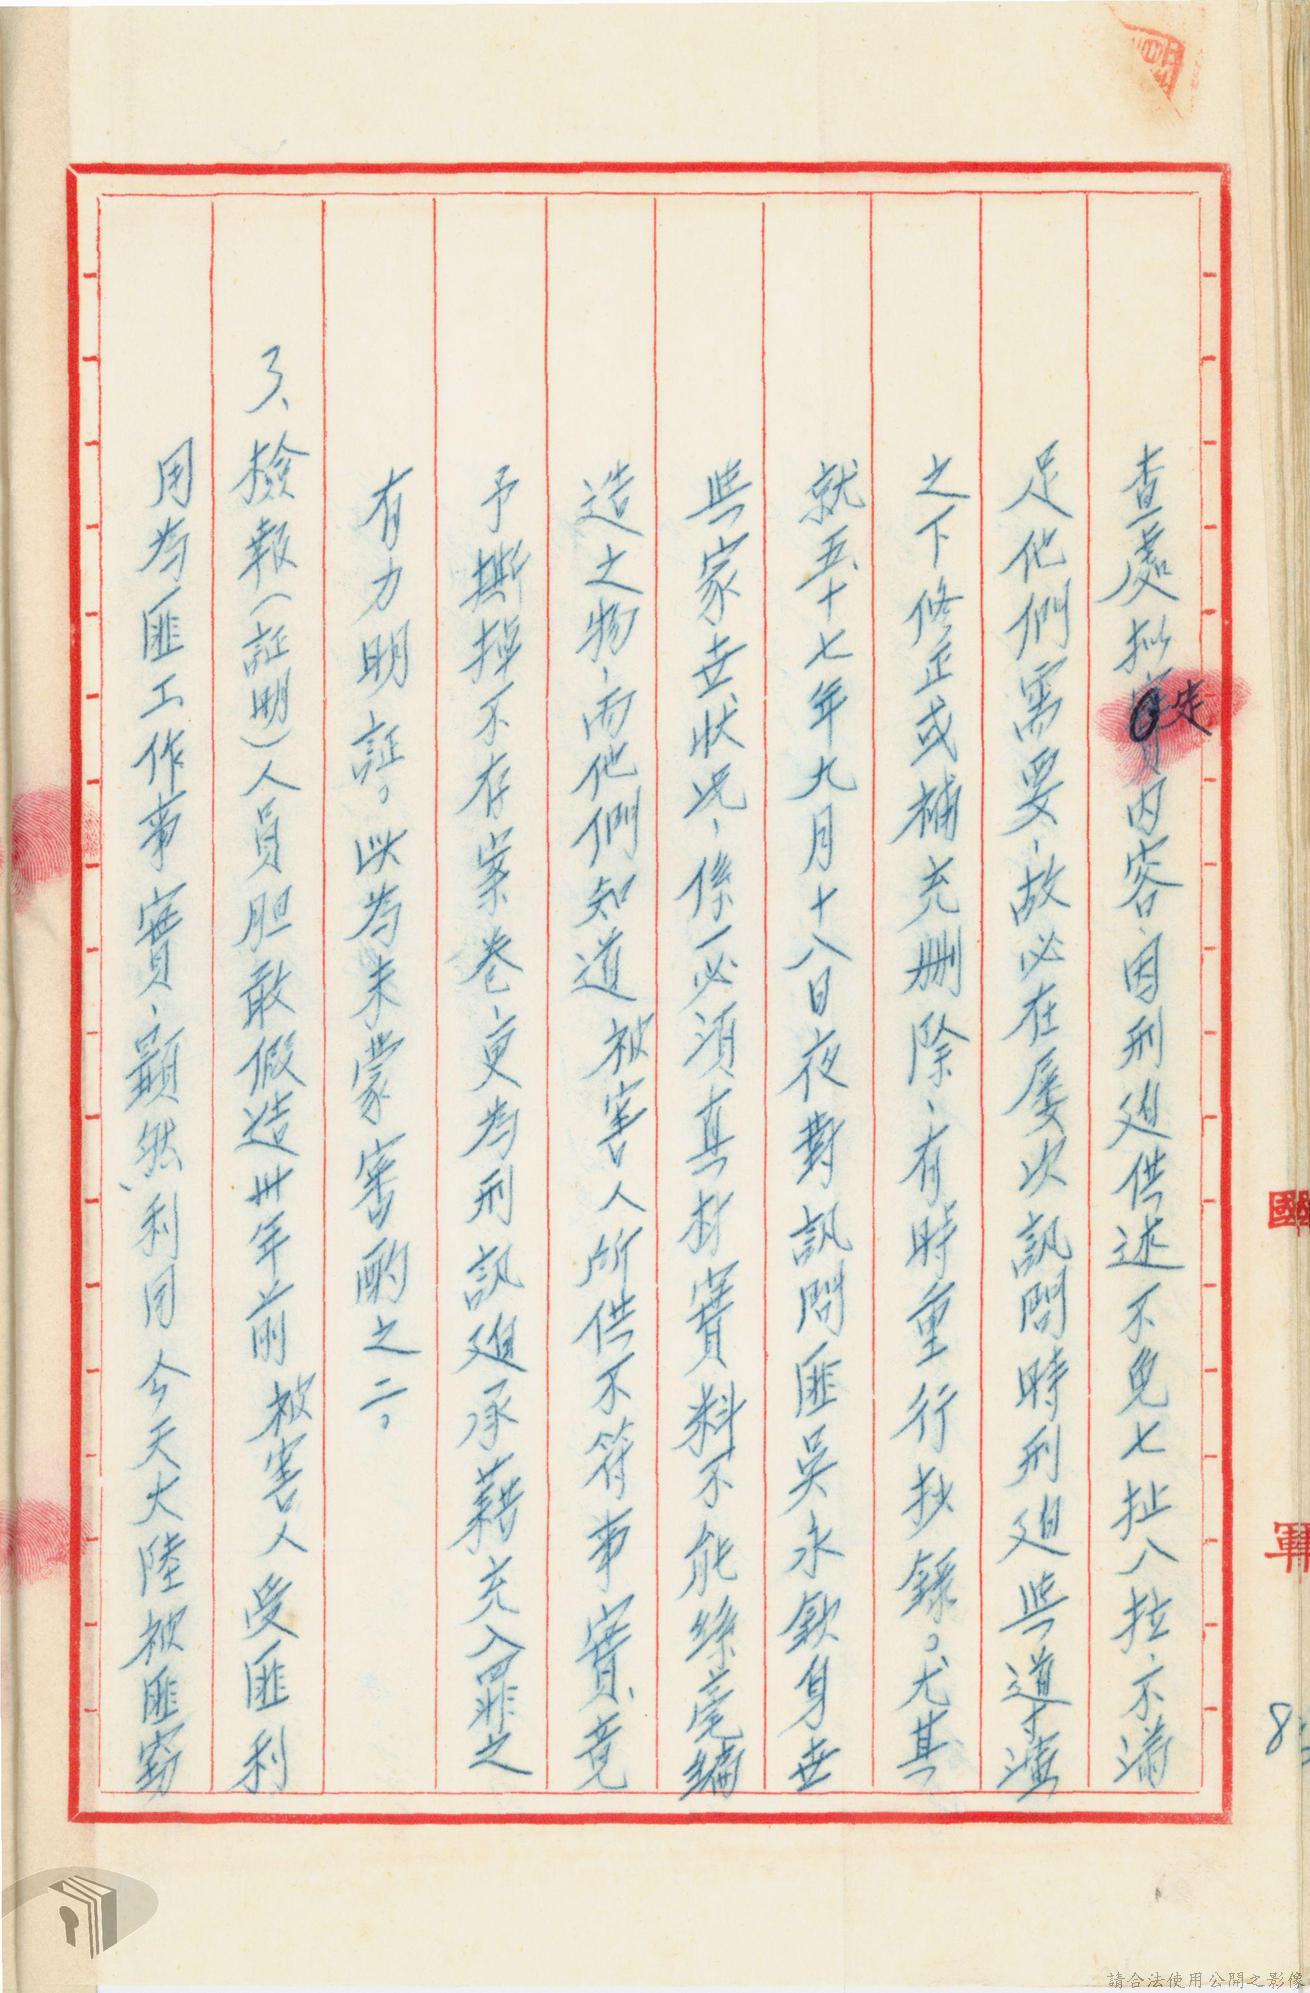 查處拟定內容、因刑廹供述不免七扯八拉、不満
足他們需要、故必在屢次訊問時刑廹与導演
之下修正或補充刪除、有時重行抄錄。尤其
就五十七年九月十八日夜對訊問匪吳永欽身世
与家世狀况、係一必須真材實料不能絲毫編
造之物、而他們知道被害人所供不符事實、竟
予撕掉不存案卷、更為刑訊廹承藉充入罪之
有力明証。以為未蒙審酌之二。
3、檢報(証明)人員胆敢假造卅年前被害人受匪利
用為匪工作事實、顯然利用今天大陸被匪竊
國
軍
8
請合法使用公開之影像